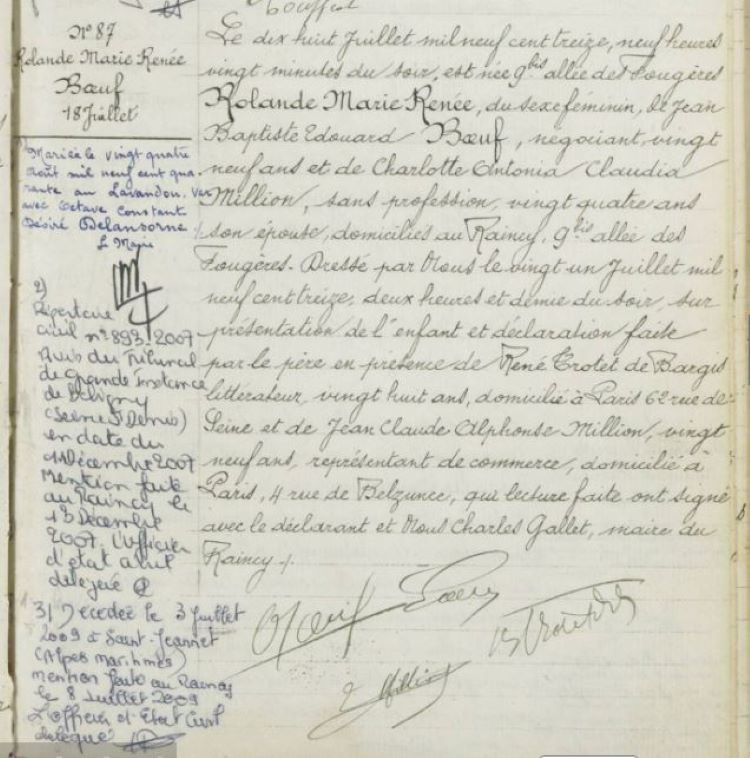 N° 87
Rolande Marie Renée
Bœuf
18 Juillet
Mariée le vingt quatre
août mil neuf cent qua
rante au Lavandou, Var
avec Octave Constant
Désiré Delansorne
Le Maire
2)
Répertoire
civil n° 893-2007
Avis du Tribunal
de Grande Instance
de Bobigny
(Seine St Denis)
en date du
11 Décembre 2007
Mention faite
au Raincy le
13 Décembre
2007. L'officier
d'état civil
délégué
3) Décédée le 3 juillet
2009 à Saint-Jeannet
(Alpes maritimes)
mention faite au Raincy
le 8 juillet 2009
L'officier d'Etat Civil
délégué
Le dix huit Juillet mil neuf cent treize, neuf heures
vingt minutes du soir, est née 9bis allée des Fougères
Rolande Marie Renée, du sexe féminin, de Jean
Baptiste Edouard Bœuf, négociant, vingt
neuf ans et de Charlotte Antonia Claudia
Million, sans profession, vingt quatre ans
son épouse, domiciliés au Raincy, 9bis allée des
Fougères. Dressé par Nous le vingt un Juillet mil
neuf cent treize, deux heures et demie du soir, sur
présentation de l'enfant et déclaration faite
par le père en présence de René Trotet de Bargis
littérateur, vingt huit ans, domicilié à Paris 62 rue de
Seine et de Jean Claude Alphonse Million, vingt
neuf ans, représentant de commerce, domicilié à
Paris, 4 rue de Belzunce, qui lecture faite ont signé
avec le déclarant et Nous Charles Gallet, maire du
Raincy
Million